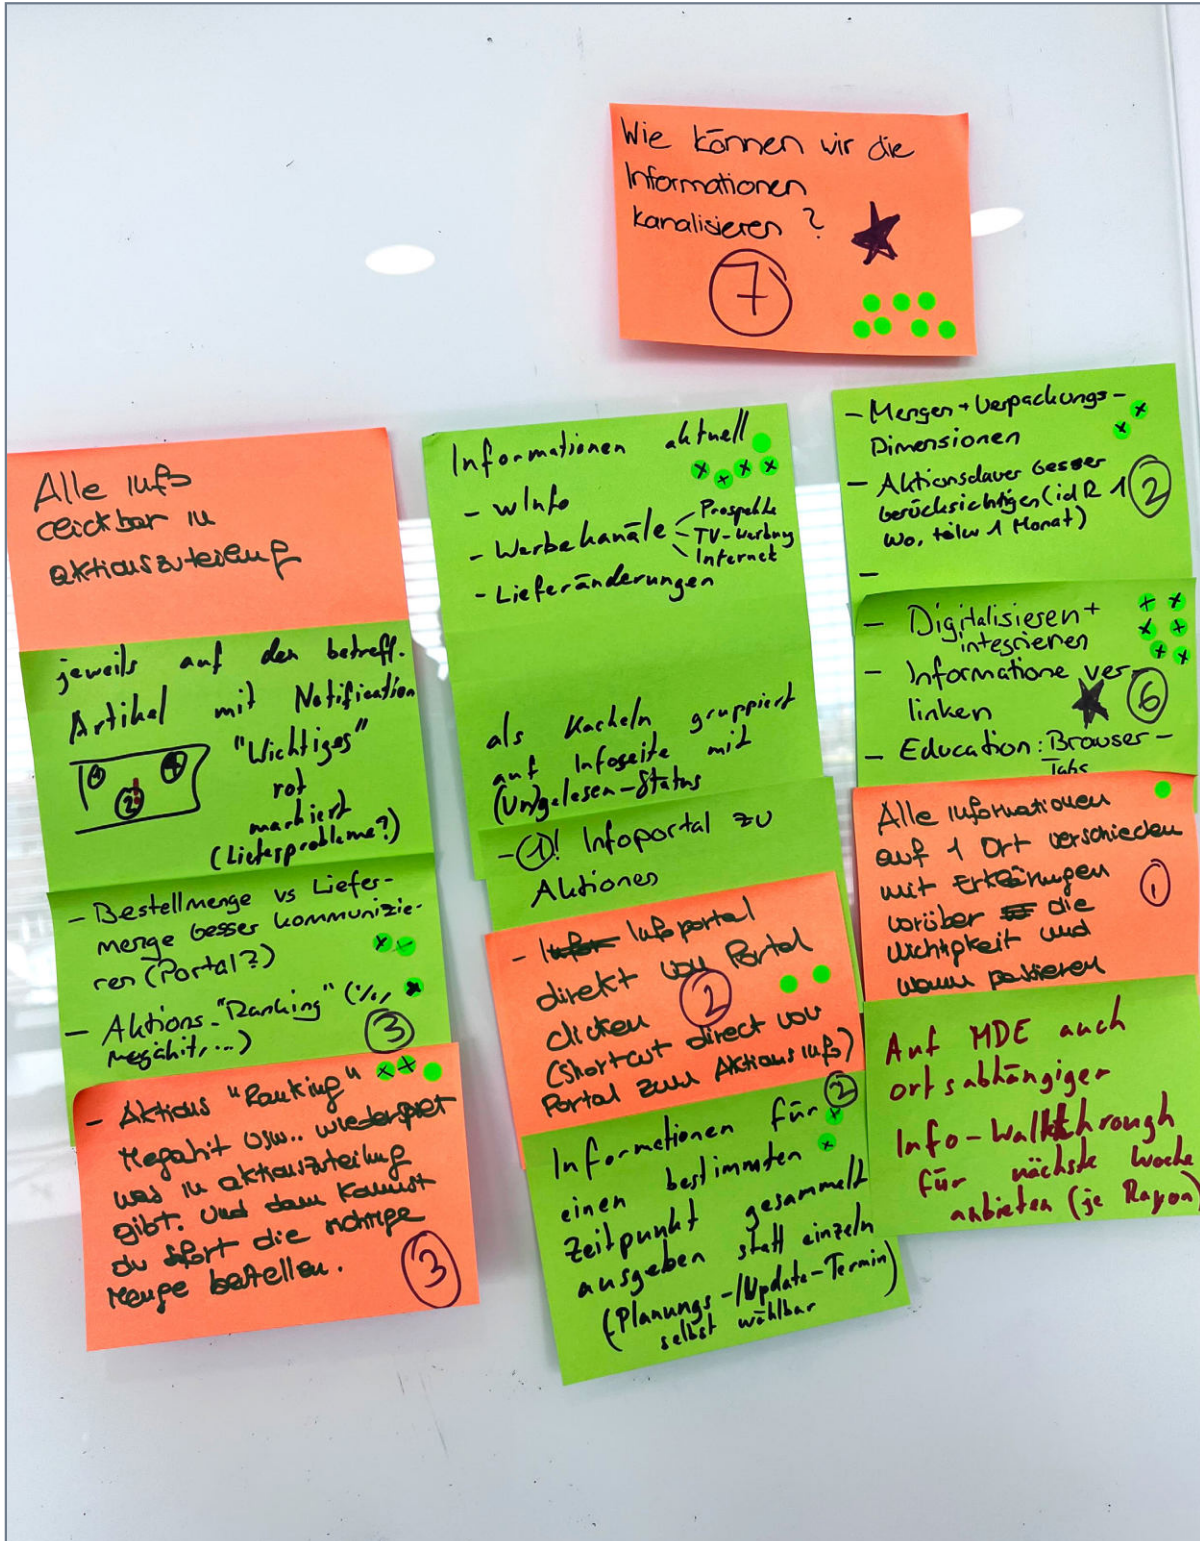 Wie können wir die
Informationen
kanalisieren ?
7
Alle Infos
clickbar in
aktionszuteilung
jeweils auf den betreff.
Artikel mit Notification
"Wichtiges"
rot
markiert
(Lieferprobleme?)
- Bestellmenge vs Liefer-
menge besser kommunizie-
ren (Portal?)
- Aktions-"Ranking" (%,
megahit, ...)
3
- Aktions "Ranking"
Megahit usw.. wiederspiet
was in aktionszuteilung
gibt. und dann kannst
du sofort die richtige
Menge bestellen.
3
Informationen aktuell
- wInfo
- Werbekanäle
Prospekte
TV-Werbung
Internet
- Lieferänderungen
als Kacheln gruppiert
auf Infoseite mit
(Un)gelesen-Status
- 1! Infoportal zu
Aktionen
- Infoportal
direkt von Portal
clicken
2
(Shortcut direct von
Portal zum Aktions infos)
2
Informationen für
einen bestimmten
Zeitpunkt gesammelt
ausgeben statt einzeln
(Planungs-/Update-Termin)
selbst wählbar
- Mengen + Verpackungs-
Dimensionen
- Aktionsdauer besser
berücksichtigen (idR 1
Wo, teilw 1 Monat)
2
-
- Digitalisieren +
integrieren
- Informatione ver-
linken
6
- Education: Browser-
Tabs
Alle Informationen
auf 1 Ort verschieden
mit Erklärungen
worüber die
wichtigkeit und
wann passieren
1
Auf MDE auch
ortsabhängiger
Info-Walkthrough
für nächste Woche
anbieten (je Rayon)